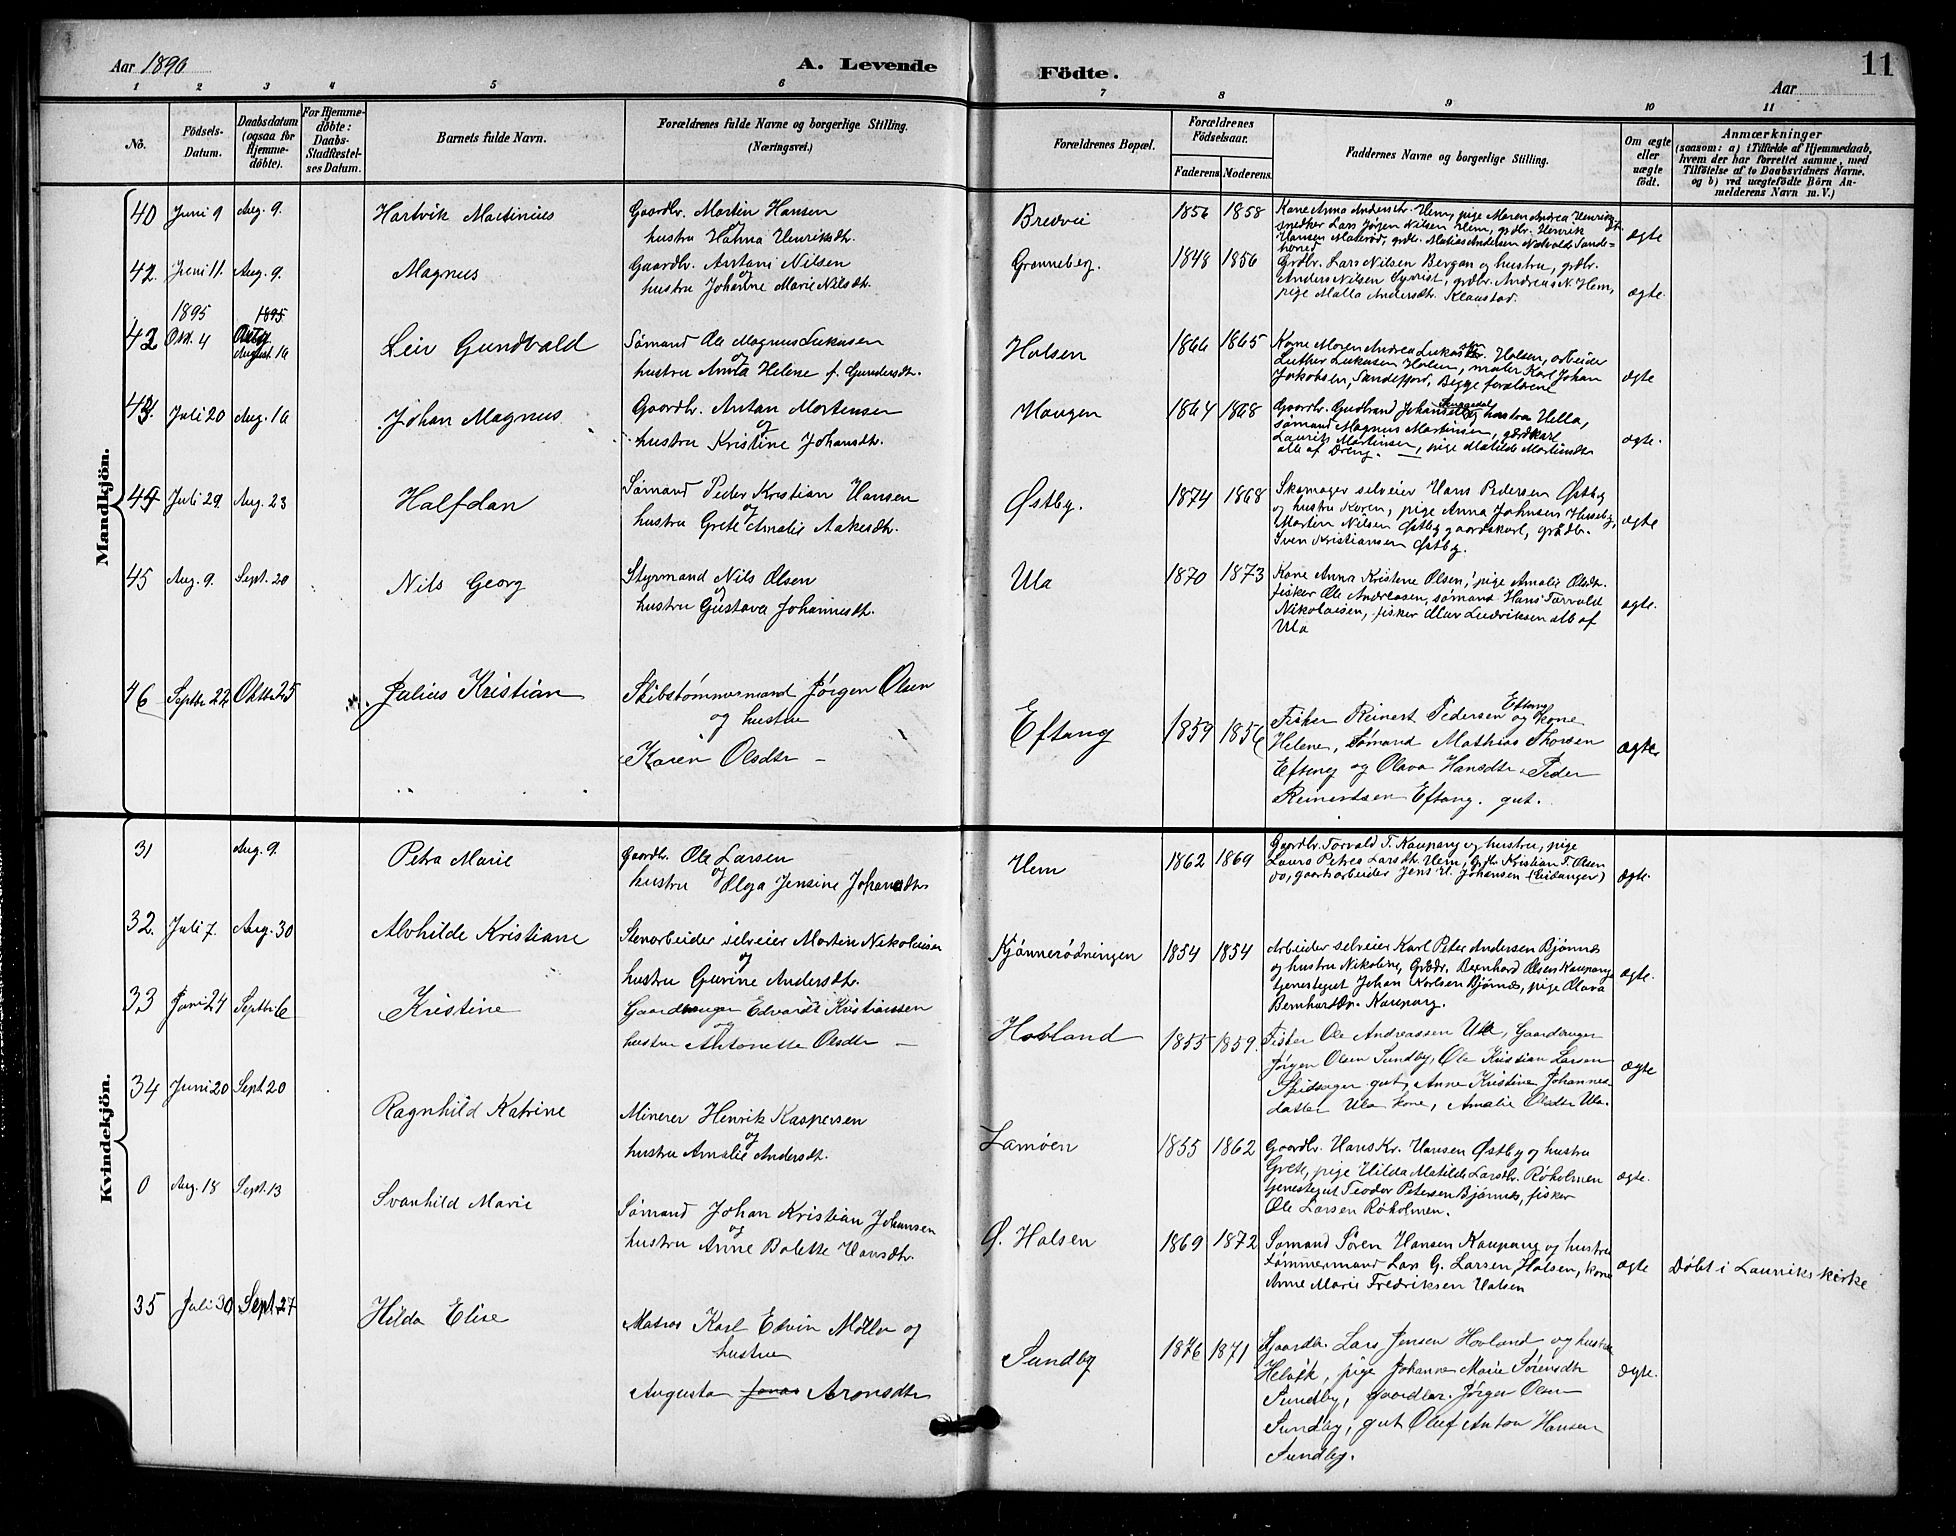 Aar 1896
A. Levende
Födte.
Aar
11
1 2 3 4 5 6 7 8 9 10 11
No.
Födsels-Datum.
Daabsdatum (ogsaa for Hjemmedøbte).
For Hjemmedøbte: Daabs-Stadfæstelses Datum.
Barnets fulde Navn.
Forældrenes fulde Navne og borgerlige Stilling. (Næringsvei.)
Forældrenes Bopæl.
Forældrenes Födselsaar.
Faderens Moderens
Faddernes Navne og borgerlige Stilling.
Om ægte eller uægte födt.
Anmærkninger
(saasom: a) i Tilfælde af Hjemmedaab, hvem der har forrettet samme, med Tilföielse af to Daabsvidners Navne, og b) ved uægtefödte Börn Anmelderens Navn m. V.)
Mandkjön.
40 Juni 9 Aug. 9. Hartvik Martinius
Gaardbr. Martin Hansen
og
hustru Hanna Henriksdtr.
Bredvei 1856 1858
Kone Anna Andersdtr. Hem, pige Maren Andrea Henriksdtr.
snedker Lars Jørgen Nilsen Hem, grdbr. Henrik
Hansen
ægte
42. Juni 11. Aug. 9. Magnus
Gaardbr. Antani Nilsen
og
hustru Johanne Marie Nilsdtr.
Grønneberg. 1848 1856
Grdbr. Lars Nilsen Bergan og hustru, grdbr.
Anders Nilsen Syvrist, grdbr. Andreas N. Hem,
pige Malla Andersdtr. Klaastad.
ægte.
1895 1895
42 Okt. 4 August 16 Leiv Gundvald
Sømand Ole Magnus Lukasen
og
hustru Anna Helene f. Gundersdtr.
Halsen 1866 1865
Kone Maren Andrea Lukasdtr. Halsen, arbeider
Luther Lukasen Halsen, maler Karl Johan
Jakobsen, Sandefjord, Begge forældrene
ægte
43. Juli 20 Aug. 16 Johan Magnus
Gaardbr. Antan Mortensen
og
hustru Kristine Johansdtr.
Haugen 1864 1868
Gaardbr. Gudbrand Johansen og hustru Hella,
sømand Magnus Martinsen, grdkarl
Laurits Martinsen, pige Matilde Martinsdtr
alle af Dreng.
ægte.
44 Juli 29. Aug. 23 Halfdan
Sømand Peder Kristian Hansen
og
hustru Grete Amalie Aakesdtr.
Østby. 1874 1868
Skomager selveier Hans Pedersen Østby
og hustru Karen, pige Anna Johnsen Husseby,
Martin Nilsen Østby gaardskarl, grdbr.
Sven Kristiansen Østby.
ægte
45 Aug. 9. Sept. 20 Nils Georg
Styrmand Nils Olsen
og
hustru Gustava Johannesdtr.
Ula 1870 1873
Kone Anna Kristine Olsen, pige Amalie Olsdtr.
fisker Ole Andreasen, sømand Hans Torvald
Nikolaisen, fisker Olav Ludviksen alle af
Ula
ægte.
46 Septbr 22 Oktbr 25 Julius Kristian
Skibstømmermand Jørgen Olsen
og hustru
Karen Olsdtr –
Eftang 1859 1856
Fisker Reinert Pedersen Eftang og kone
Helene, Sømand Mathias Thorsen
Eftang og Olava Hansdtr. Peder
Reinertsen Eftang. gut.
ægte
Kvindekjön.
31 Aug. 9. Petra Marie
Gaardbr. Ole Larsen
og
hustru Helga Jensine Johansdtr
Hem 1862 1869
Gaardbr. Torvald T. Kaupang og hustru, pige
Laura Petrea Larsdtr. Hem, grdbr. Kristian T. Olsen
do, gaardsarbeider Jens H. Johansen (Eidanger)
ægte.
32. Juli 7. Aug. 30 Alvhilde Kristiane
Stenarbeider selveier Martin Nikolaisen
og
hustru Gurine Andersdtr.
Kjønnerødningen 1854 1854
Arbeider selveier Karl Peter Andersen Bjønnes
og hustru Nikoline, Grdbr. Bernhard Olsen Kaupang
tjenestegut Johan Karlsen Bjønnes, pige Olava
Bernhardsdtr. Kaupang.
ægte.
33 Juni 24 Septbr 6 Kristine
Gaardbruger Edvardt Kristianssen
og
hustru Antonette Olsdtr –
Hovland 1855 1859.
Fisker Ole Andreassen Ula, Gaardbruger
Jørgen Olsen Sundby, Ole Kristian Larsen
gut, Anne Kristine Johannes-
datter Ula kone, Amalie Olsdtr Ula.
ægte
34 Juni 20 Sept 20 Ragnhild Katrine
Minerer Henrik Kaspersen
og
hustru Amalie Andersdt.
Lamøen 1855 1862
Gaardbr. Hans Kr. Hansen Østby og hustru
Grete, pige Hilda Matilde Larsdtr. Røholmen
tjenestegut Teodor Petersen Bjønnes, fisker
Ole Larsen Røholmen.
ægte.
0 Aug. 18 Sept. 13 Svanhild Marie
Sømand Johan Kristian Johansen
og
hustru Anne Bolette Hansdtr.
Ø. Halsen 1869 1872
Sømand Søren Hansen Kaupang og hustru
tømmermand Lars G. Larsen Halsen, kone
Anne Marie Fredriksen Halsen
ægte
Døbt i Laurviks kirke
35 Juli 30 Sept 27 Hilda Elise
Matros Karl Edvin Møller og
hustru
Augusta Aronsdtr
Sundby 1876 1871
Gaardbr. Lars Jensen Hovland og hustru
Helvik, pige Johanne Marie Sørensdtr
Sundby, gaardbr. Jørgen Olsen
Sundby, gut Oluf Anton Hansen
Sundby.
ægte.